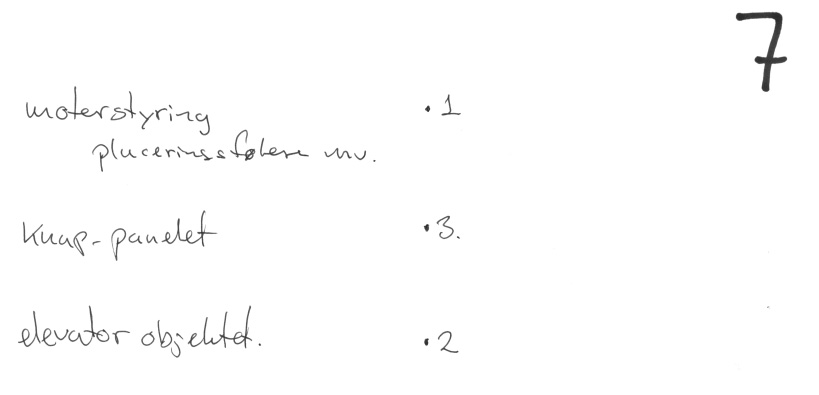 7
moterstyring · 1
placeringsfølere mv.
Knap-panelet · 3.
elevator objektet. · 2